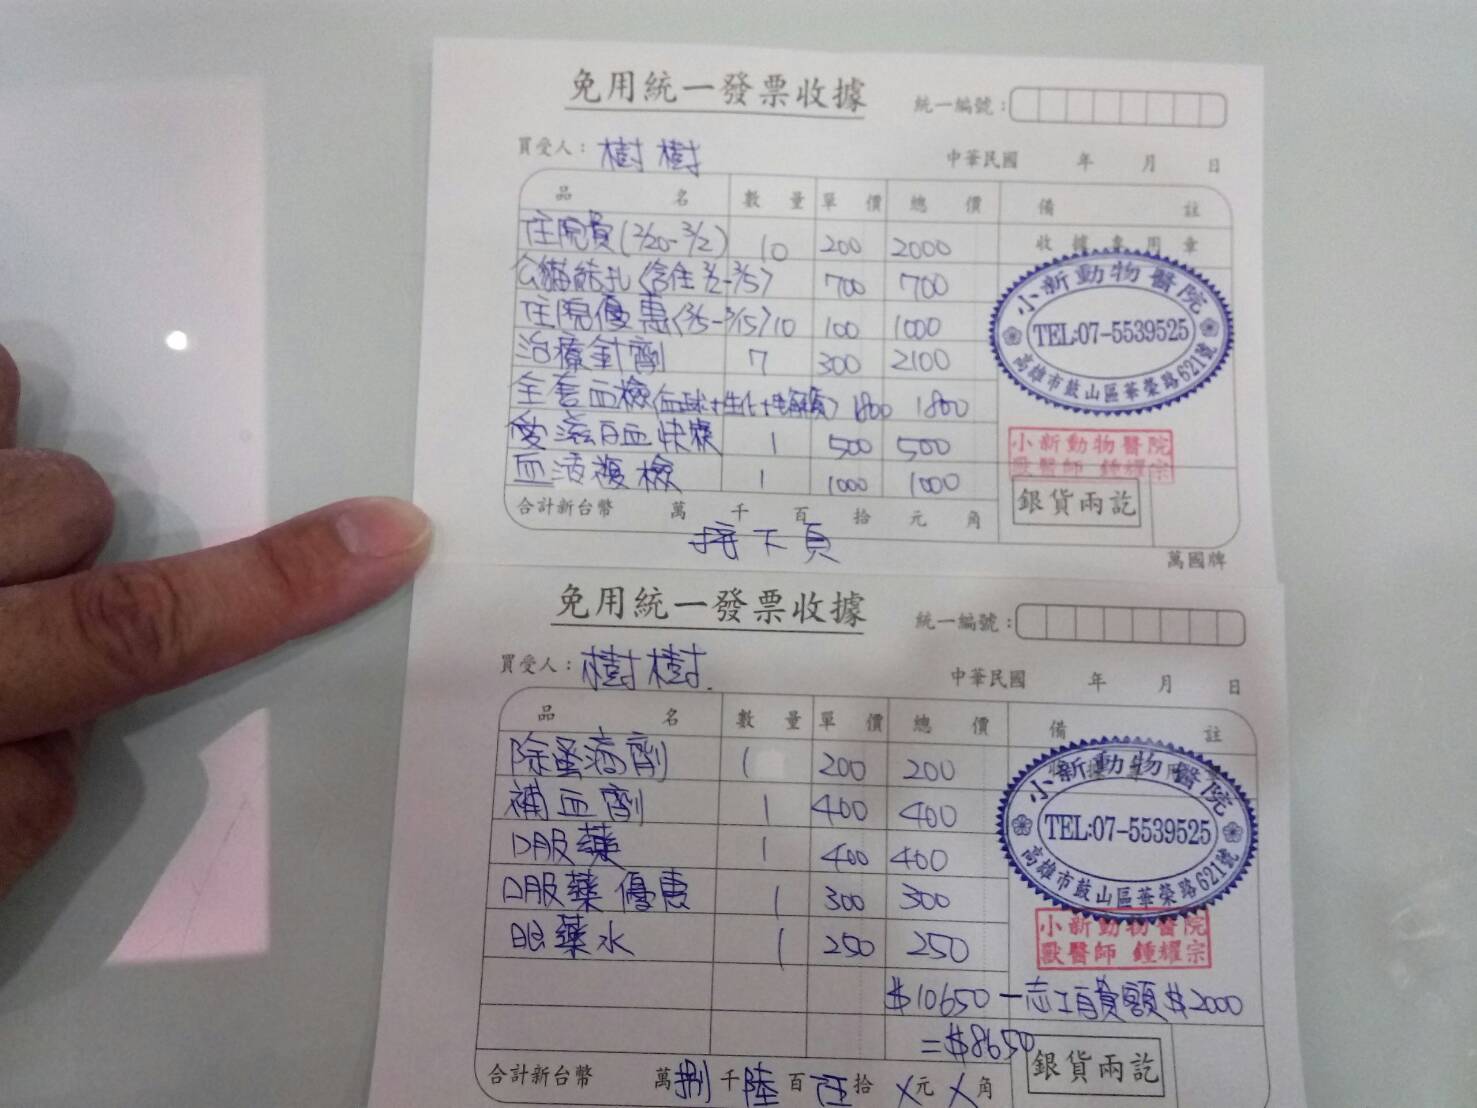 免用統一發票收據
統一編號：
買受人：樹樹
中華民國 年 月 日
品名 數量 單價 總價 備註
收據專用章
住院費(2/20-3/2) 10 200 2000
公貓結扎(含住3/2-3/5) 700 700
住院優惠(3/5-3/15) 10 100 1000
治療針劑 7 300 2100
全套血檢(血球+生化+電解質) 1800 1800
愛滋白血快篩 1 500 500
血液複檢 1 1000 1000
小新動物醫院
TEL:07-5539525
高雄市鼓山區華榮路621號
小新動物醫院
獸醫師 鍾耀宗
銀貨兩訖
合計新台幣 萬 千 百 拾 元 角
接下頁
萬國牌
免用統一發票收據
統一編號：
買受人：樹樹
中華民國 年 月 日
品名 數量 單價 總價 備註
除蚤滴劑 1 200 200
補血劑 1 400 400
口服藥 1 400 400
口服藥優惠 1 300 300
眼藥水 1 250 250
小新動物醫院
TEL:07-5539525
高雄市鼓山區華榮路621號
小新動物醫院
獸醫師 鍾耀宗
$10650-志工自費額$2000
=$8650
銀貨兩訖
合計新台幣 萬捌千陸百伍拾X元X角